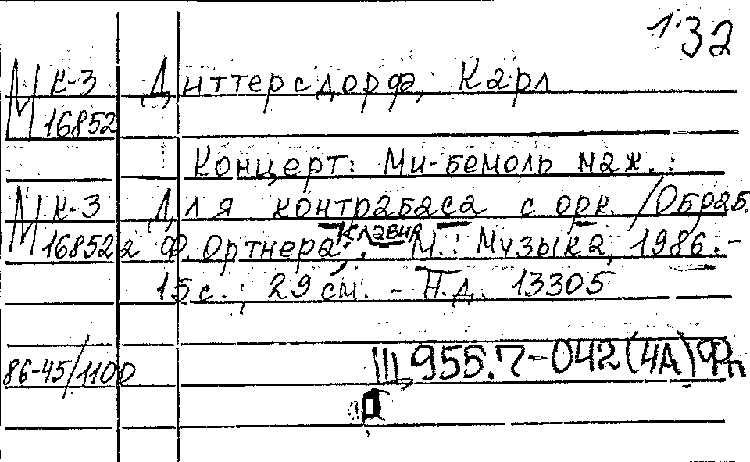 132
М К-3 Диттерсдорф, Карл
16852
Концерт: Ми-бемоль маж.:
М К-3 Для контрабаса с орк. /Обраб.
16852а Ф. Ортнера; Клавир. М.: Музыка, 1986.-
15 с.; 29 см. - Н.д. 13305
86-45/1100 Ш955.7-042(4А)Фп